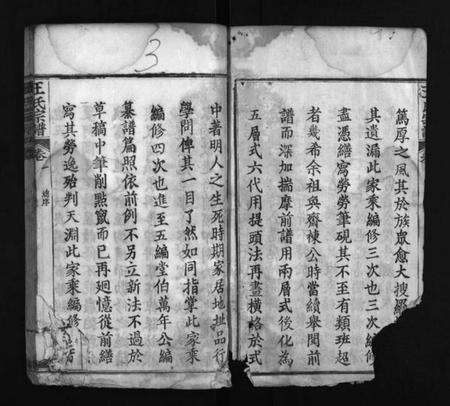 王氏宗譜
篤厚之風其於族眾愈大搜
其遺漏此家乘編修三次也三次編修
盡憑繕寫勞勞筆硯其不至有類班超
者幾希余祖與齊棟公時嘗續舉閱前
譜而深加揣摩前譜用兩層式後化為
五層式六代用提頭法再畫橫格於式
中著明人之生死時期家居地址品行
學問俾其一目了然如同指掌此家乘
編修四次也進至五編堂伯萬年公編
纂譜篇照依前例不另立新法不過於
草稿中筆削點竄而已再廻憶從前繕
寫其勞逸殆判天淵此家乘編修
王氏宗譜
卷
3